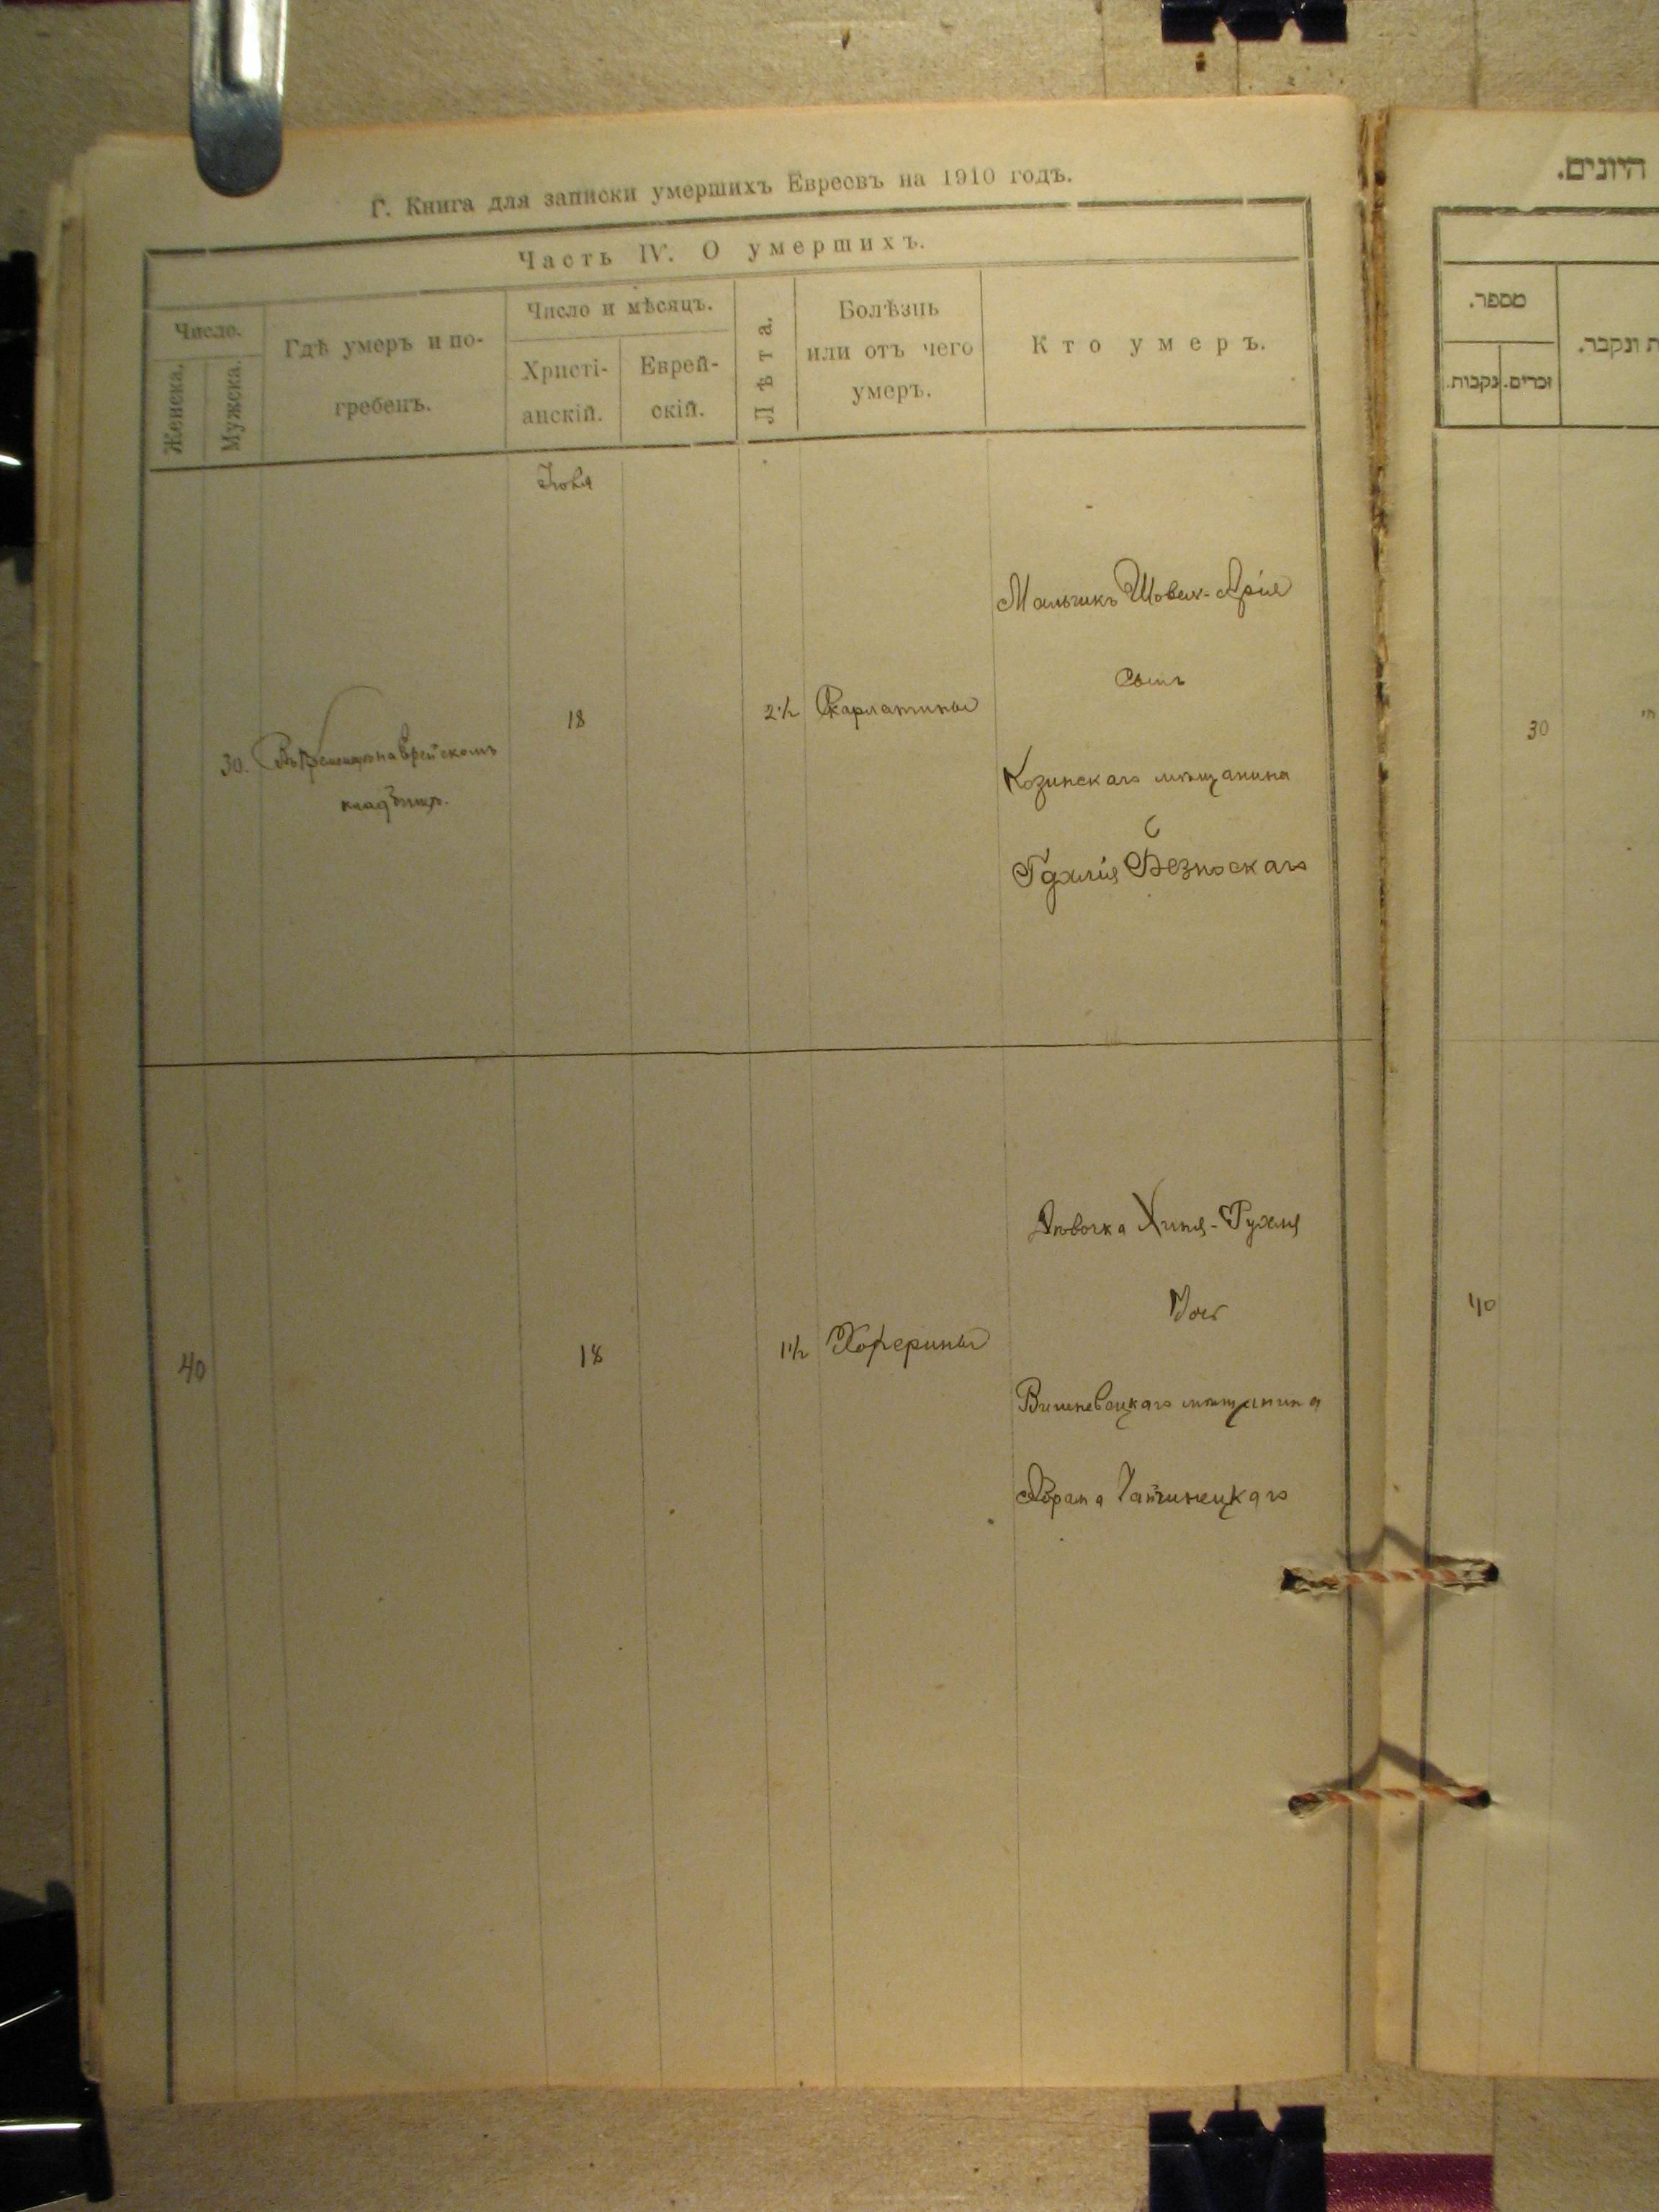 Г. Книга для записки умершихъ Евреевъ на 1910 годъ.
Часть IV. О умершихъ.
Число.
Женска.
Мужска.
Гдѣ умеръ и по-
гребенъ.
Число и мѣсяцъ.
Христі-
анскій.
Еврей-
скій.
Лѣта.
Болѣзнь
или отъ чего
умеръ.
Кто умеръ.
30.
Въ Кременцѣ на Еврейскомъ
кладбищѣ.
18
2½
Скарлатины
Мальчикъ Шовел-Арія
Сынъ
Козинскаго мѣщанина
Гдалія Безноскаго
40
18
1½
Девочка Хиня-Рухля
Дочь
Вишневецкаго мѣщанина
Абрама
היונים.
מספר.
נקבות.
זכרים.
ונקבר.
30
40